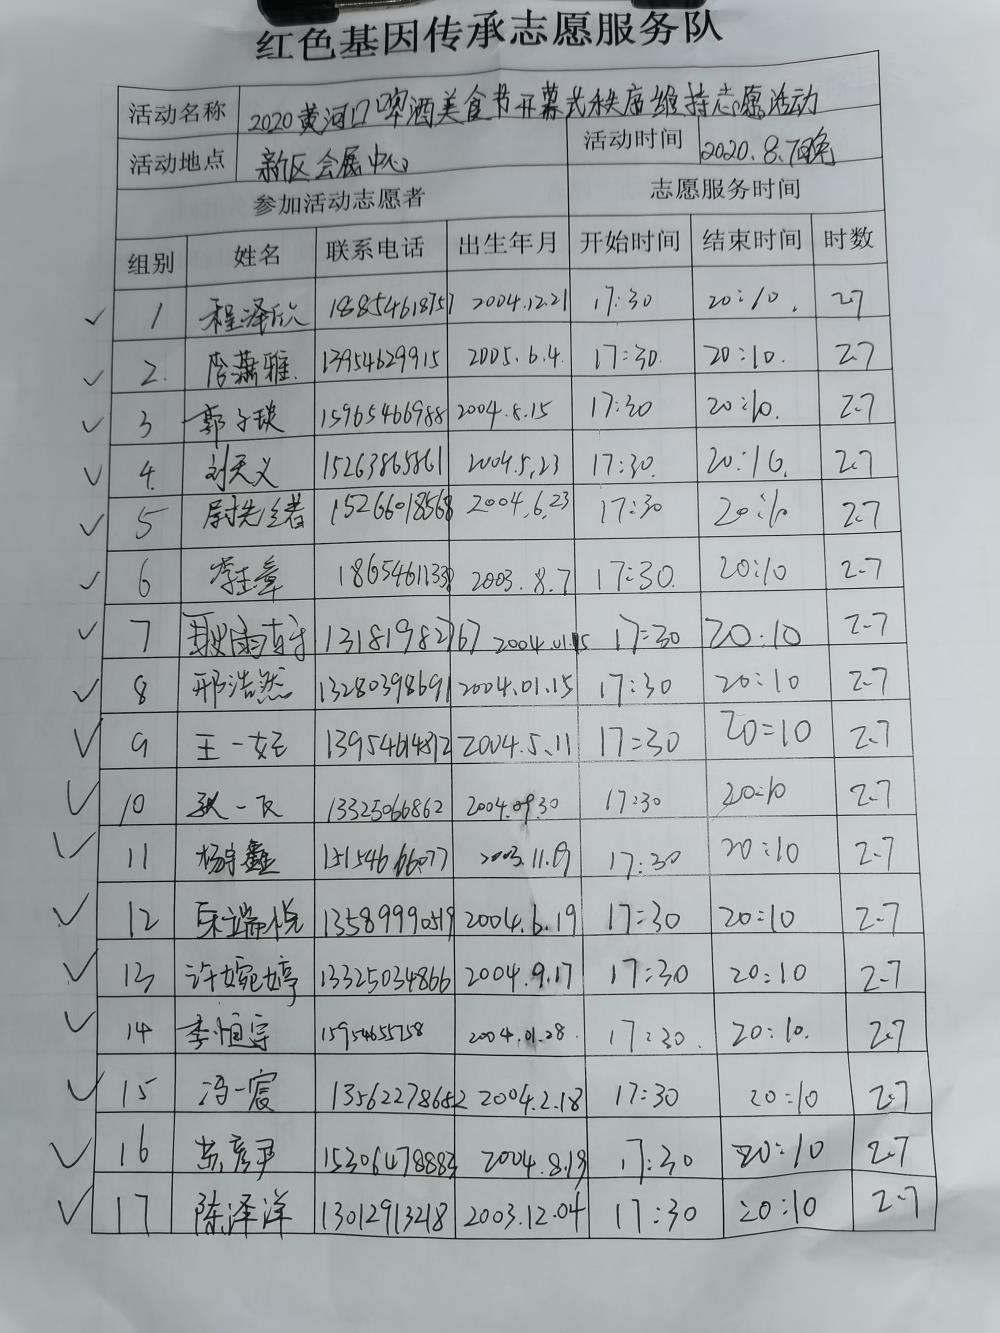 红色基因传承志愿服务队
活动名称 2020黄河口啤酒美食节开幕式秩序维持志愿活动
活动地点 新区会展中心 活动时间 2020.8.7晚
参加活动志愿者 志愿服务时间
组别 姓名 联系电话 出生年月 开始时间 结束时间 时数
1 程泽欣 18854618757 2004.12.21 17:30 20:10. 2.7
2. 李潇雅. 13954629915 2005.6.4. 17:30. 20:10. 2.7
3 郭子琰 15965466988 2004.8.15 17:30 20:10. 2.7
4. 刘天义 15263865861 2004.5.23 17:30. 20:10. 2.7
5 尉先者 15266018568 2004.6.23 17:30 20:10 2.7
6 李玉章 1865461133 2003.8.7 17:30. 20:10 2.7
7 耿雨 13181982767 2004.01.15 17:30 20:10 2.7
8 邢浩然 13280398691 2004.01.15 17:30 20:10 2.7
9 王一妃 13954614872 2004.5.11 17:30 20:10 2.7
10 一 13325066862 2004.09.30 17:30 20:10 2.7
11 杨宇鑫 15154666077 2003.11.09 17:30 20:10 2.7
12 宋端悦 13589990519 2004.6.19 17:30 20:10 2.7
13 许婉婷 13325034866 2004.9.17 17:30 20:10 2.7
14 李恒宇 15954655758 2004.01.28. 17:30. 20:10. 2.7
15 冯一宸 13562278652 2004.2.18 17:30 20:10 2.7
16 苏彦尹 15306478883 2004.8.19 17:30 20:10 2.7
17 陈泽洋 13012913218 2003.12.04 17:30 20:10 2.7